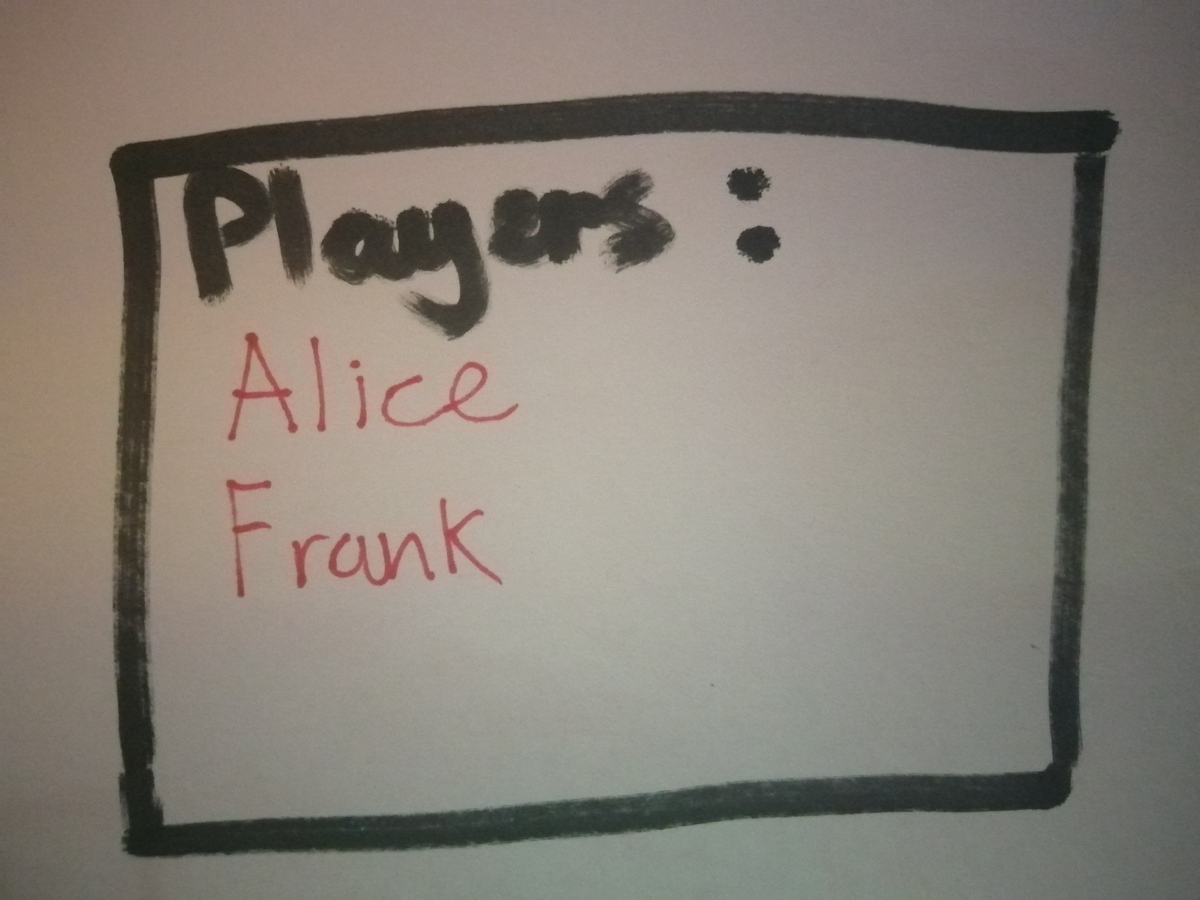 Players :
Alice
Frank